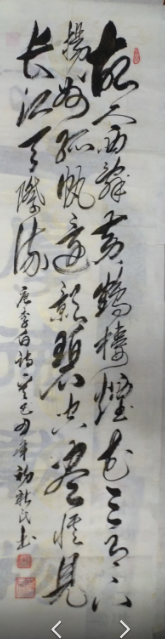 故人西辞黄鹤楼烟花三月下
扬州孤帆远影碧空尽惟见
长江天际流
唐李白诗 癸巳